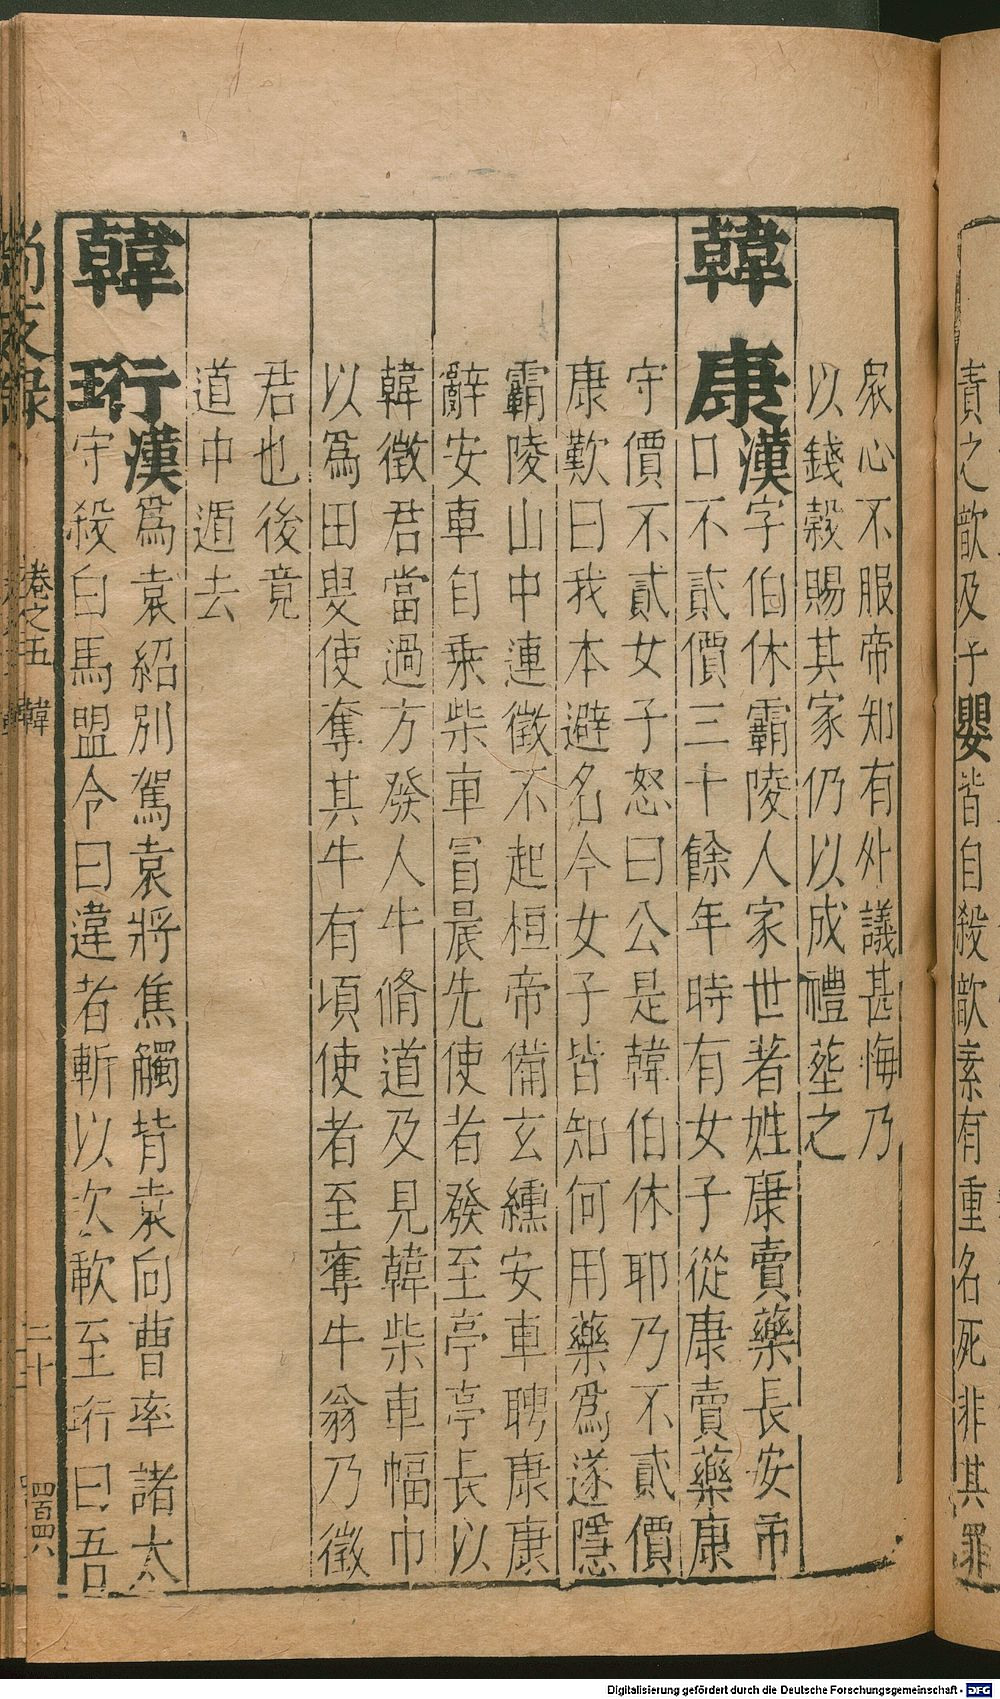 責之歆及子嬰皆自殺歆素有重名死非其罪
衆心不服帝知有外議甚悔乃
以錢穀賜其家仍以成禮塟之
韓康
漢字伯休霸陵人家世著姓康賣藥長安市
口不貳價三十餘年時有女子從康賣藥康
守價不貳女子怒曰公是韓伯休耶乃不貳價
康歎曰我本避名今女子皆知何用藥爲遂隱
霸陵山中連徵不起桓帝備玄纁安車聘康康
辭安車自乘柴車冒晨先使者發至亭亭長以
韓徵君當過方發人牛脩道及見韓柴車幅巾
以爲田叟使奪其牛有頃使者至奪牛翁乃徵
君也後竟
道中遁去
韓珩
漢爲袁紹別駕袁將焦觸背袁向曹率諸太
守殺白馬盟令曰違者斬以次歃至珩曰吾
尚友録
卷之五
韓
二十
四百四八
Digitalisierung gefördert durch die Deutsche Forschungsgemeinschaft - DFG